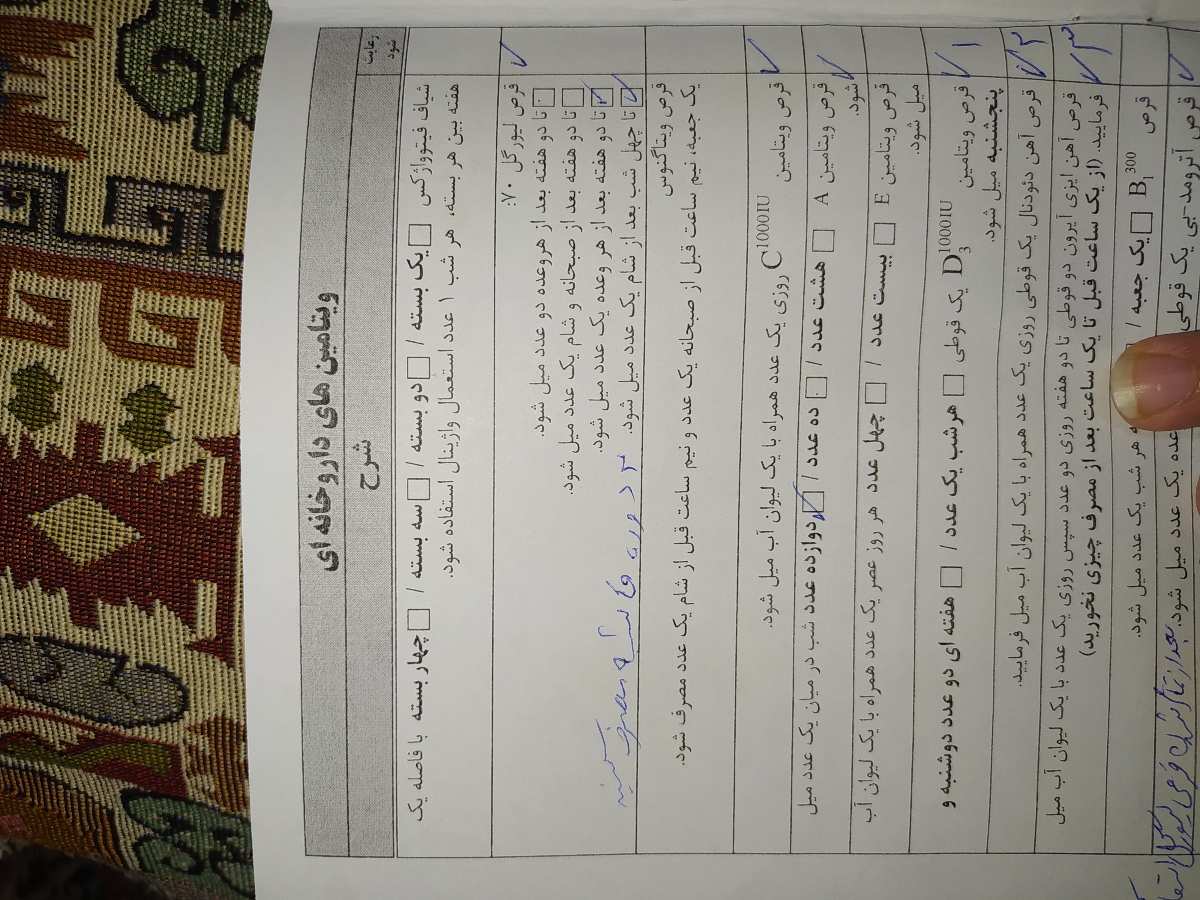 ویتامین های داروخانه ای
شرح
رعایت شود
شیاف فیتوواژکس □ یک بسته / □ دو بسته / □ سه بسته / □ چهار بسته با فاصله یک
هفته بین هر بسته، هر شب ۱ عدد استعمال واژینال استفاده شود.
قرص لیورگل ۷۰:
✓
□ تا دو هفته بعد از هر وعده دو عدد میل شود.
□ تا دو هفته بعد از صبحانه و شام یک عدد میل شود.
☑ تا دو هفته بعد از هر وعده یک عدد میل شود.
☑ تا چهل شب بعد از شام یک عدد میل شود.
۳ دوره
قرص ویتاگنوس
یک جعبه، نیم ساعت قبل از صبحانه یک عدد و نیم ساعت قبل از شام یک عدد مصرف شود.
قرص ویتامین C1000IU روزی یک عدد همراه با یک لیوان آب میل شود.
✓
قرص ویتامین A □ هشت عدد / □ ده عدد / ☑ دوازده عدد شب در میان یک عدد میل
شود.
✓
قرص ویتامین E □ بیست عدد / □ چهل عدد هر روز عصر یک عدد همراه با یک لیوان آب
میل شود.
قرص ویتامین D3 1000IU یک قوطی □ هرشب یک عدد / □ هفته ای دو عدد دوشنبه و
پنجشنبه میل شود.
✓ ۱
قرص آهن دئودنال یک قوطی روزی یک عدد همراه با یک لیوان آب میل فرمایید.
✓ ۲
قرص آهن ایزی آیرون دو قوطی تا دو هفته روزی دو عدد سپس روزی یک عدد با یک لیوان آب میل
فرمایید. (از یک ساعت قبل تا یک ساعت بعد از مصرف چیزی نخورید)
✓ ۳
قرص B1 300 □ یک جعبه /
هر شب یک عدد میل شود.
قرص آترومد-بی یک قوطی
عده یک عدد میل شود. بعد از
✓